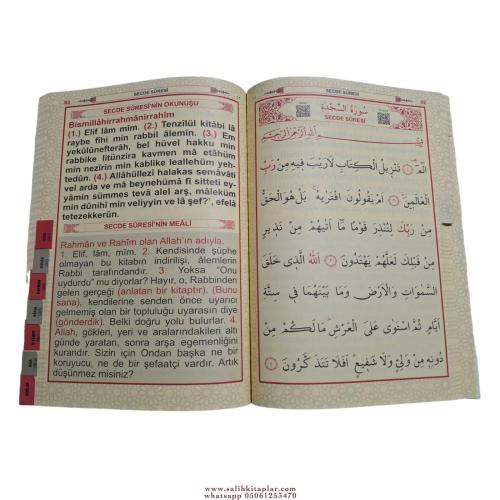 93
SECDE SÛRESİ
SECDE SÛRESİ'NİN OKUNUŞU
Bismillâhirrahmânirrahîm
(1.) Elif lâm mîm. (2.) Tenzîlül kitâbi lâ
raybe fîhi min rabbil âlemîn. (3.) Em
yekûlûnefterâh, bel hüvel hakku min
rabbike litünzira kavmen mâ etâhüm
min nezîrin min kablike leallehüm yeh-
tedûn. (4.) Allâhüllezî halakas semâvâti
vel arda ve mâ beynehümâ fî sitteti ey-
yâmin sümmes tevâ alel arş, mâleküm
min dûnihî min veliyyin ve lâ şefî', efelâ
tetezekkerûn.
SECDE SÛRESİ'NİN MEÂLİ
Rahmân ve Rahîm olan Allah'ın adıyla.
1. Elif, lâm, mîm. 2. Kendisinde şüphe
olmayan bu kitabın indirilişi, âlemlerin
Rabbi tarafındandır. 3. Yoksa “Onu
uydurdu” mu diyorlar? Hayır, o, Rabbinden
gelen gerçeği (anlatan bir kitaptır). (Bunu
sana), kendilerine senden önce uyarıcı
gelmemiş olan bir topluluğu uyarasın diye
(gönderdik). Belki doğru yolu bulurlar. 4.
Allah, gökleri, yeri ve aralarındakileri altı
günde yaratan, sonra arşa egemenliğini
kurandır. Sizin için Ondan başka ne bir
koruyucu, ne de bir şefaatçi vardır. Artık
düşünmez misiniz?
SECDE SÛRESİ
سُورَةُ السَّجْدَةِ
SECDE SÛRESİ
بِسْمِ اللّٰهِ الرَّحْمٰنِ الرَّحِيمِ
الٓمٓ ﴿١﴾ تَنْزِيلُ الْكِتَابِ لَا رَيْبَ فِيهِ مِنْ رَبِّ
الْعَالَمِينَ ﴿٢﴾ اَمْ يَقُولُونَ افْتَرٰيهُ بَلْ هُوَ الْحَقُّ
مِنْ رَبِّكَ لِتُنْذِرَ قَوْمًا مَٓا اَتٰيهُمْ مِنْ نَذِيرٍ
مِنْ قَبْلِكَ لَعَلَّهُمْ يَهْتَدُونَ ﴿٣﴾ اَللّٰهُ الَّذِي خَلَقَ
السَّمٰوَاتِ وَالْاَرْضَ وَمَا بَيْنَهُمَا فِي سِتَّةِ
اَيَّامٍ ثُمَّ اسْتَوٰى عَلَى الْعَرْشِ مَا لَكُمْ مِنْ
دُونِهِ مِنْ وَلِيٍّ وَلَا شَفِيعٍ اَفَلَا تَتَذَكَّرُونَ ﴿٤﴾
www.salihkitaplar.com
whatsapp 05061253470